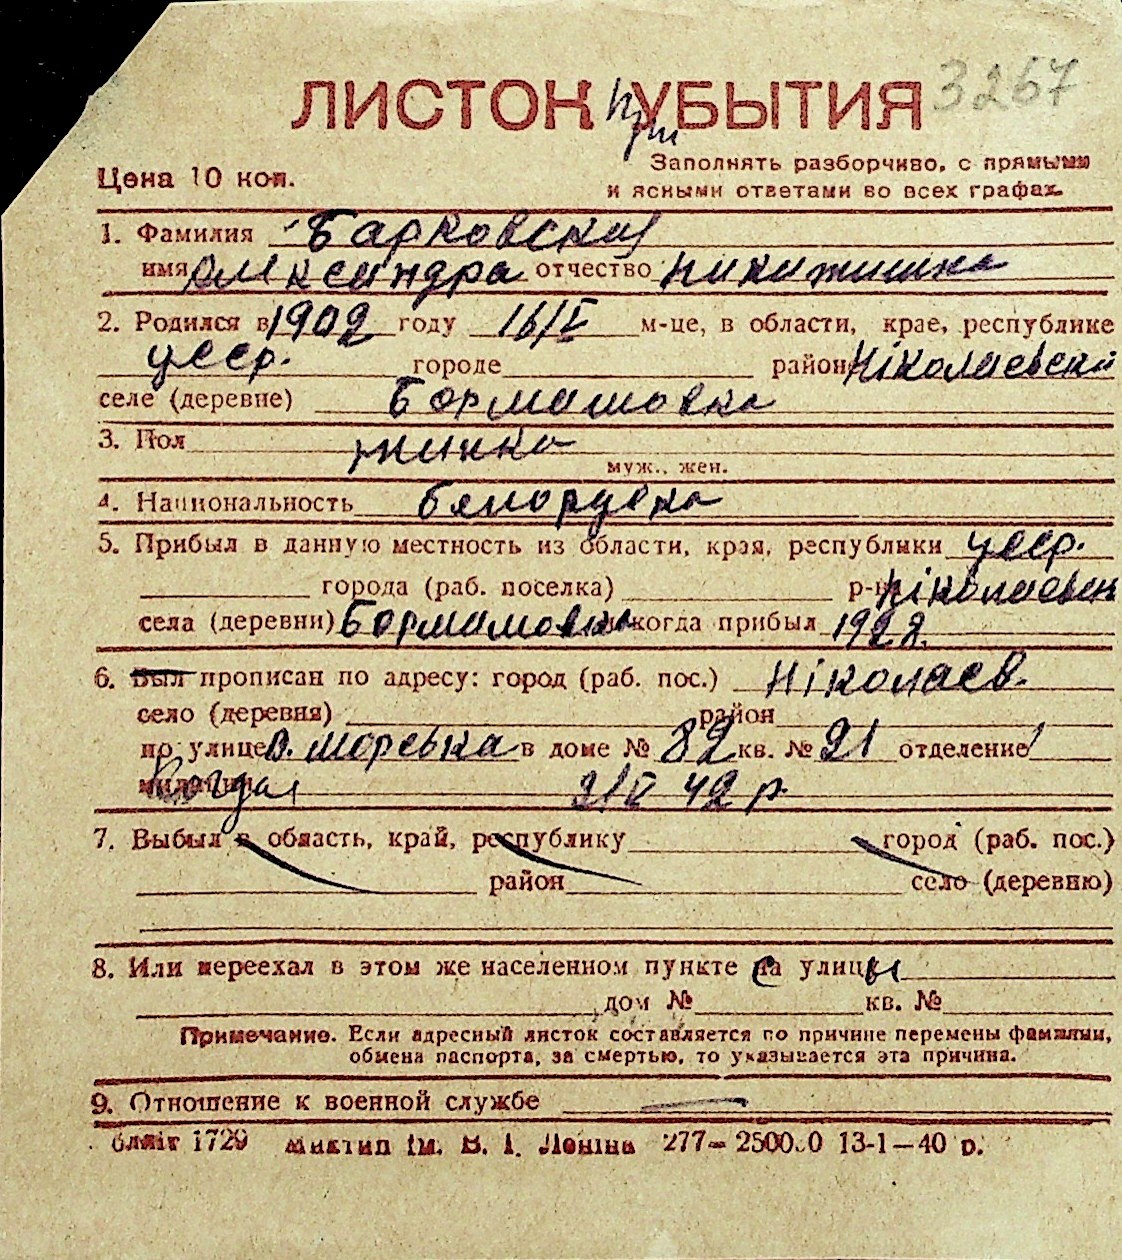 ЛИСТОК при УБЫТИЯ 3267
Цена 10 коп.
Заполнять разборчиво, с прямыми
и ясными ответами во всех графах.
1. Фамилия Барковская
имя Олександра отчество Никитишна
2. Родился в 1902 году 16/I м-це, в области, крае, республике
усср. городе районе Ніколаевский
селе (деревне) Бормашовка
3. Пол жинка
муж., жен.
4. Национальность
5. Прибыл в данную местность из области, края, республики усср.
города (раб. поселка) р-на Ніколаевск
села (деревни) Бормашовка когда прибыл 1928.
6. Был прописан по адресу: город (раб. пос.) Ніколаев.
село (деревня) район
по улице В. Морська в доме № 82 кв. № 21 отделение
милиции Когда 42 р.
7. Выбыл в область, край, республику город (раб. пос.)
район село (деревню)
8. Или переехал в этом же населенном пункте с улицы
дом № кв. №
Примечание. Если адресный листок составляется по причине перемены фамилии,
обмена паспорта, за смертью, то указывается эта причина.
9. Отношение к военной службе —
Обліт 1729 Миктип ім. В. І. Леніна 277—25000 13-1—40 р.